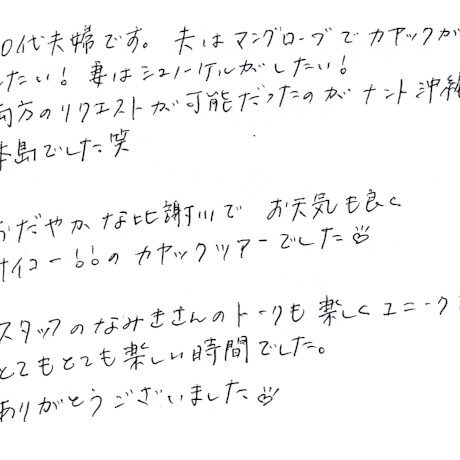 0代夫婦です。夫はマングローブでカヤックが
したい!妻はシュノーケルがしたい!
両方のリクエストが可能だったのがナント沖縄
本島でした笑
おだやかな比謝川で お天気も良く
サイコー!!のカヤックツアーでした
スタッフのなみきさんのトークも楽しくユニークで
とてもとても楽しい時間でした。
ありがとうございました